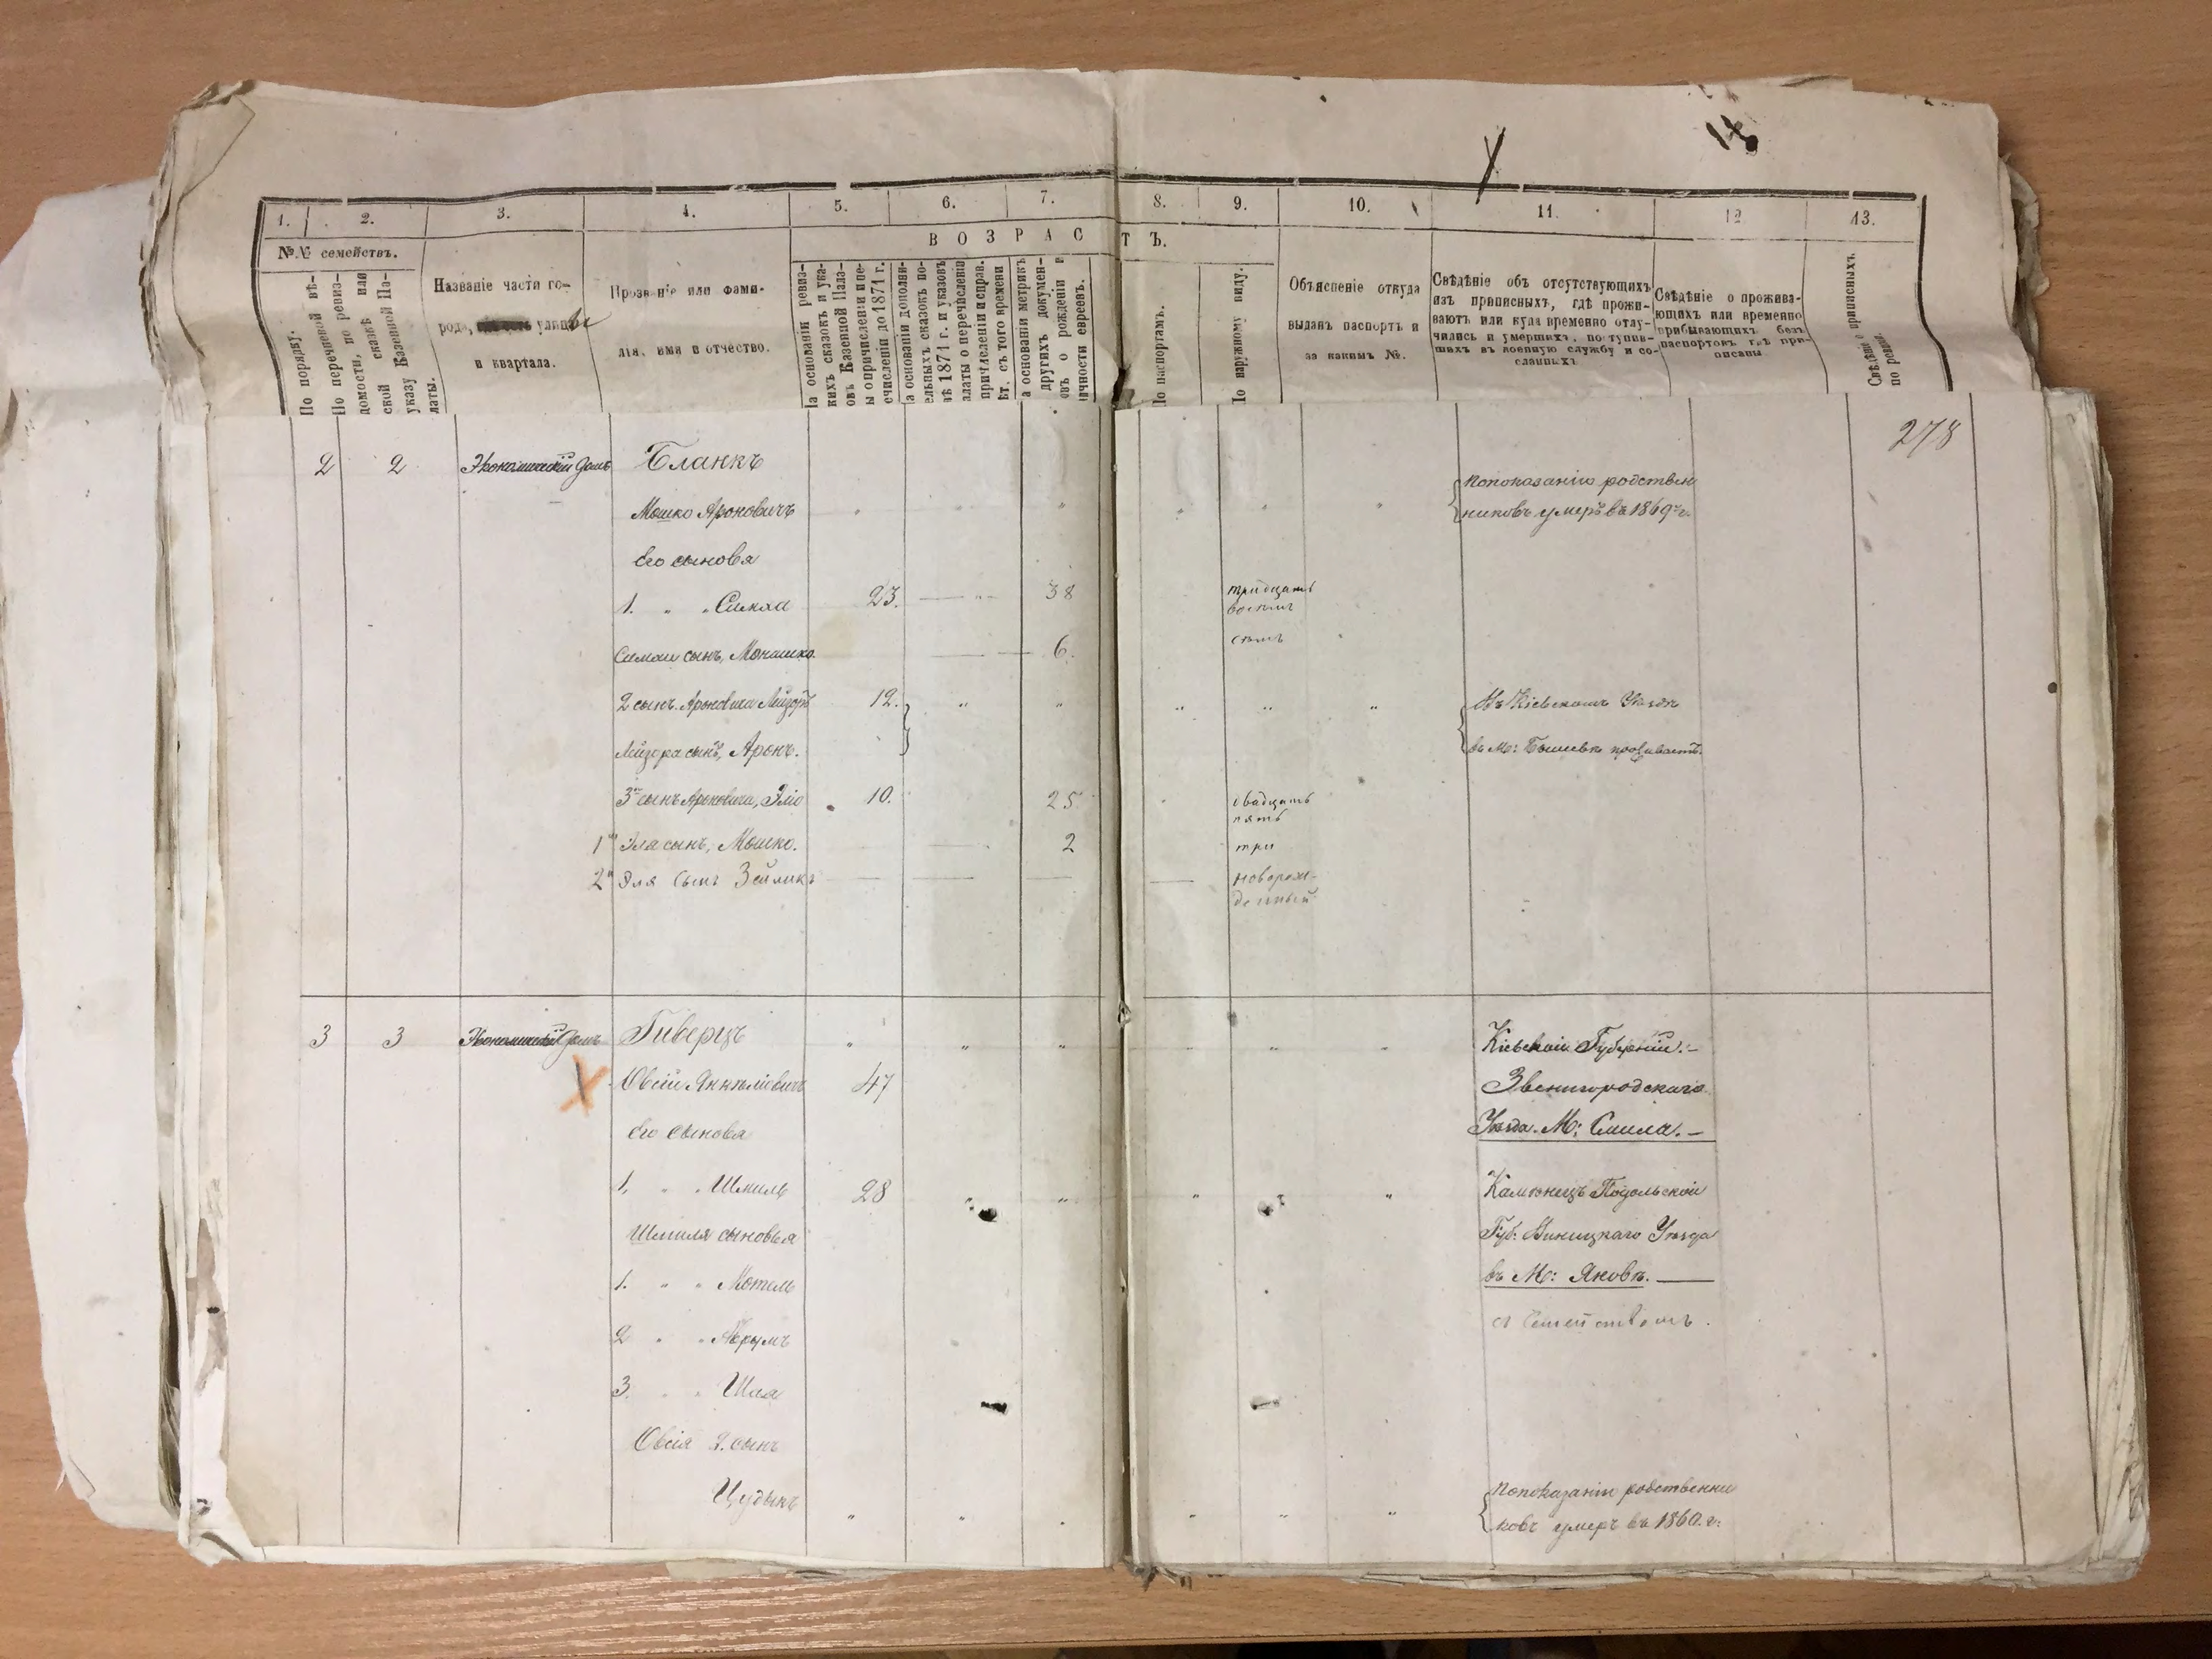 18
1. 2. 3. 4. 5. 6. 7. 8. 9. 10. 11. 12 13.
№№ семействъ.
По порядку.
По перечневой вѣ-
домости, или
по ревиз-
ской сказкѣ
указу Казенной Па-
латы.
Названіе части го-
рода, улицы
и квартала.
Прозваніе или фами-
лія, имя и отчество.
ВОЗРАСТЪ.
На основаніи ревиз-
кихъ сказокъ и ука-
овъ Казенной Пала-
ы о причисленіи и пе-
ечисленіи до 1871 г.
а основаніи дополни-
ельныхъ сказокъ по-
вѣ 1871 г. и указовъ
латы о перечисленіи
причисленіи и справ.
ѣт. съ того времени
а основаніи метрикъ
другихъ докумен-
овъ о рожденіи и
ичности евреевъ.
По паспортамъ.
По наружному виду.
Объясненіе откуда
выданъ паспортъ и
за какимъ №.
Свѣдѣніе объ отсутствующихъ
изъ приписныхъ, гдѣ прожи-
ваютъ или куда временно отлу-
чились и умершихъ, поступив-
шихъ въ военную службу и со-
сланныхъ
Свѣдѣніе о прожива-
ющихъ или временно
прибывающихъ безъ
паспортовъ гдѣ при-
писаны.
Свѣдѣнія о приписныхъ
по ревиз.
278
2 2 Экономическій домъ Бланкъ
Мошко Ароновичъ
По показанію родствен
никовъ умеръ въ 1869 г.
Его сыновя
1. " " Симха 23. 38 тридцать
восемь
Симхи сынъ, Монашко. 6. семь
2 сынъ Ароновича Лейзоръ 12. Въ Кіевскомъ Уѣздѣ
Лейзора сынъ, Аронъ. въ М: Бышевѣ проживаетъ.
3й сынъ Ароновича, Эліо 10. 25 двадцать
пять
1й Эля сынъ, Мошко. 2 три
2й Эля сынъ Зейликъ новорож-
денный
3 3 Экономическій домъ Гиверцъ Кіевской Губерніи.
Овсій Янкеліовичъ 47 Звенигородскаго
Его сынова Уѣзда. М: Смила.
1. " " Шмиль 28 Каменецъ Подольской
Шмиля сыновья Губ: Виницкаго Уѣзда
1. " " Мотель въ М: Яновѣ.
съ Семействомъ.
2 " " Аврумъ
3. " " Шая
Овсія 2. сынъ
Цудыкъ По показанію родственни
ковъ умеръ въ 1860. г: